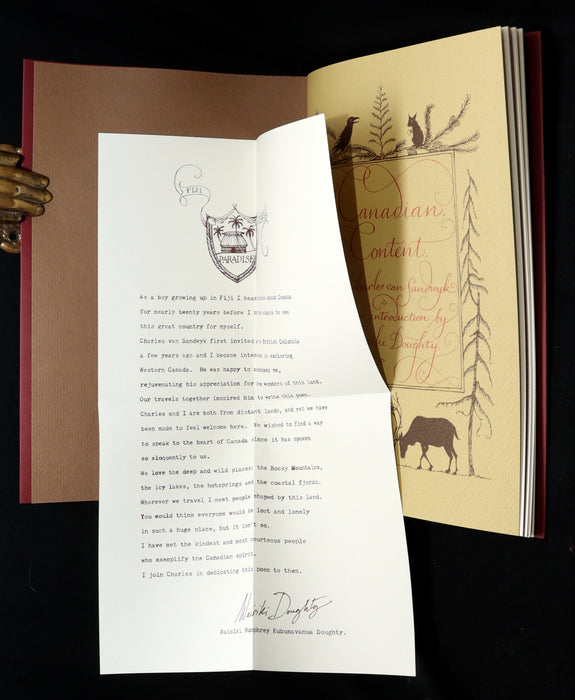 FIJI
PARADISE
As a boy growing up in Fiji I heard about Canada
for nearly twenty years before I came to see
this great country for myself.
Charles van Sandwyk first invited British Columbia
a few years ago and I became in exploring
Western Canada. He was happy to
rejuvenating his appreciation for the wonders of this land.
Our travels together inspired him to write this poem.
Charles and I are both from distant lands, and yet we have
been made to feel welcome here. We wished to find a way
to speak to the heart of Canada since it has spoken
so eloquently to us.
We love the deep and wild places: the Rocky Mountains,
the icy lakes, the hotsprings and the coastal fjords.
Wherever we travel I meet people shaped by this land.
You would think everyone would be lost and lonely
in such a huge place, but it isn't so.
I have met the kindest and most courteous people
who exemplify the Canadian spirit.
I join Charles in dedicating this poem to them.
Waisiki Doughty
Waisiki Humphrey Kubunavanua Doughty.
Canadian
Content.
Charles van Sandwyk
introduction by
Doughty